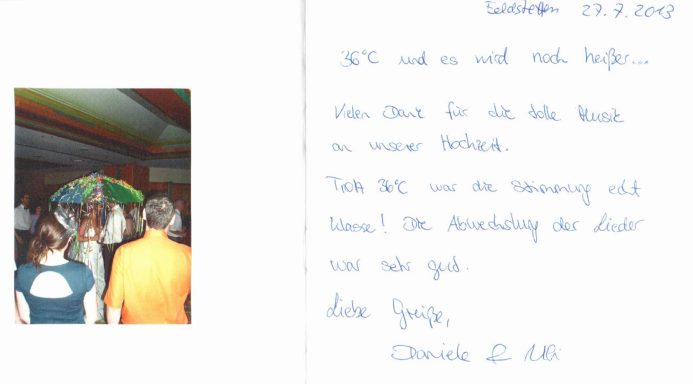 Feldstetten 27.7.2013
36°C und es wird noch heißer...
Vielen Dank für die tolle Musik
an unserer Hochzeit.
Trotz 36°C war die Stimmung echt
klasse! Die Abwechslung der Lieder
war sehr gut.
Liebe Grüße,
Daniela & Uli